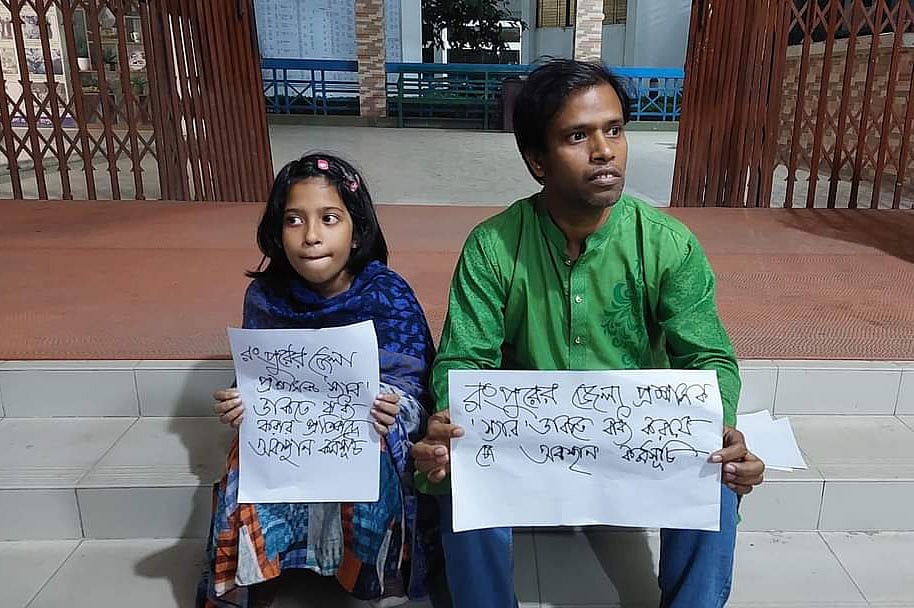 রংপুরের জেলা
প্রশাসককে 'স্যার'
ডাকতে বাধ্য
করার প্রতিবাদে
অবস্থান কর্মসূচি
রংপুরের জেলা প্রশাসক
'স্যার' ডাকতে বাধ্য করায়
অবস্থান কর্মসূচি